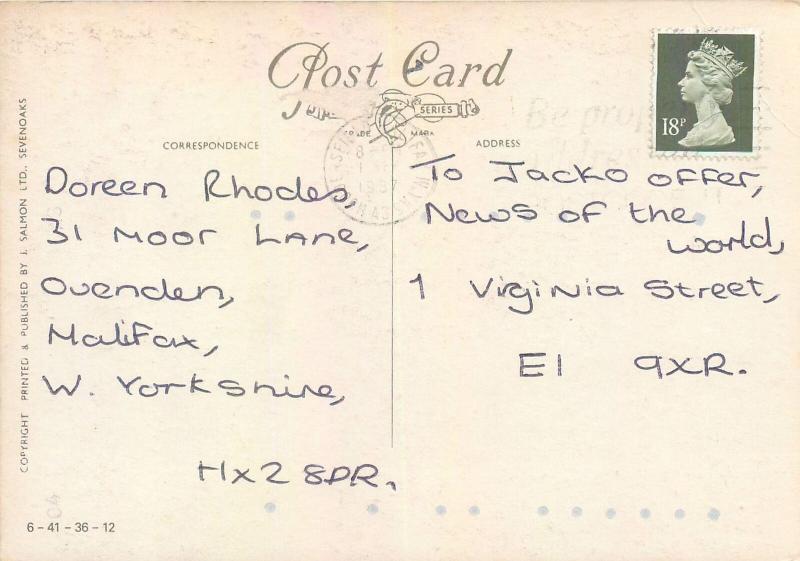 Post Card
SERIES
TRADE MARK
CORRESPONDENCE
ADDRESS
18P
1987
Be prop
Doreen Rhodes,
31 Moor Lane,
Ovenden,
Halifax,
W. Yorkshire,
HX2 8PR.
To Jacko offer,
News of the
World,
1 Virginia Street,
E1 9XR.
COPYRIGHT PRINTED & PUBLISHED BY J. SALMON LTD., SEVENOAKS
6-41-36-12